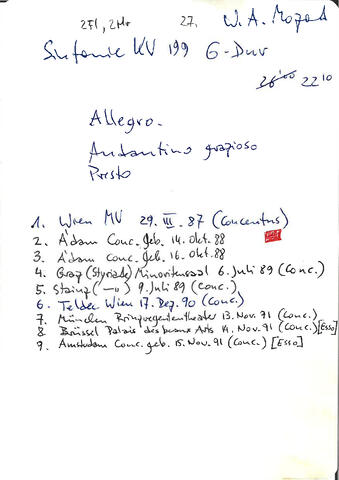 2Fl, 2Hr 27. W. A. Mozart
Sinfonie KV 199 G-Dur
26'00 22'10
Allegro.
Andantino grazioso
Presto
1. Wien MV 29. III. 87 (Concentus)
2. A'dam Conc. geb. 14. Okt. 88
3. A'dam Conc. geb. 16. Okt. 88
4. Graz (Styriade) Minoritensaal 6. Juli 89 (Conc.)
5. Stainz (—"—) 9. Juli 89 (Conc.)
6. Teldec Wien 17. Dez. 90 (Conc.)
7. München Prinzregententheater 13. Nov. 91 (Conc.)
8. Brüssel Palais des beaux Arts 14. Nov. 91 (Conc.) [Esso]
9. Amsterdam Conc. geb. 15. Nov. 91 (Conc.) [Esso]